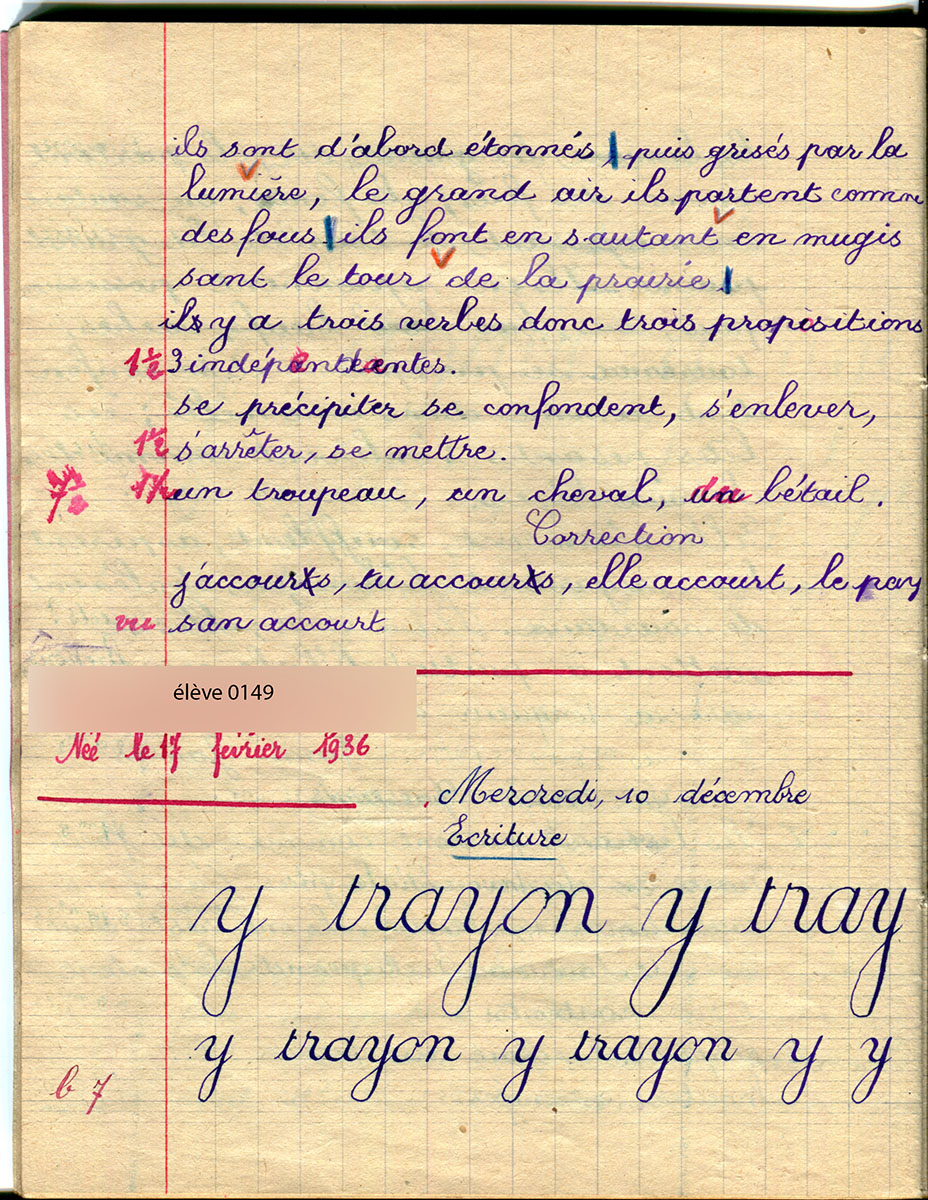 ils sont d'abord étonnés, puis grisés par la
lumière, le grand air ils partent comme
des fous ils font en sautant en mugis
sant le tour de la prairie.
ils y a trois verbes donc trois propositions
1 1/2 3 indépentéentes.
se précipiter se confondent, s'enlever,
1 1/2 s'arrêter, se mettre.
un troupeau, un cheval, du bétail.
Correction
j'accours, tu accours, elle accourt, le pay
vu san accourt
élève 0149
Née le 17 fevrier 1936
Mercredi, 10 décembre
Ecriture
y trayon y tray
y trayon y trayon y y
b 7